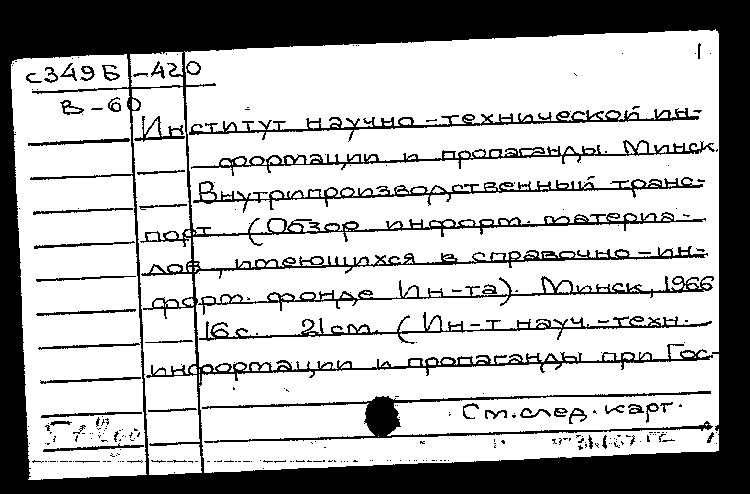 1
с349Б-420
В-60
Институт научно-технической ин-
формации и пропаганды. Минск.
Внутрипроизводственный транс-
порт (Обзор информ. материа-
лов, имеющихся в справочно-ин-
форм. фонде Ин-та). Минск, 1966
16 с. 21 см. (Ин-т науч.-техн.
информации и пропаганды при Гос-
См. след. карт.